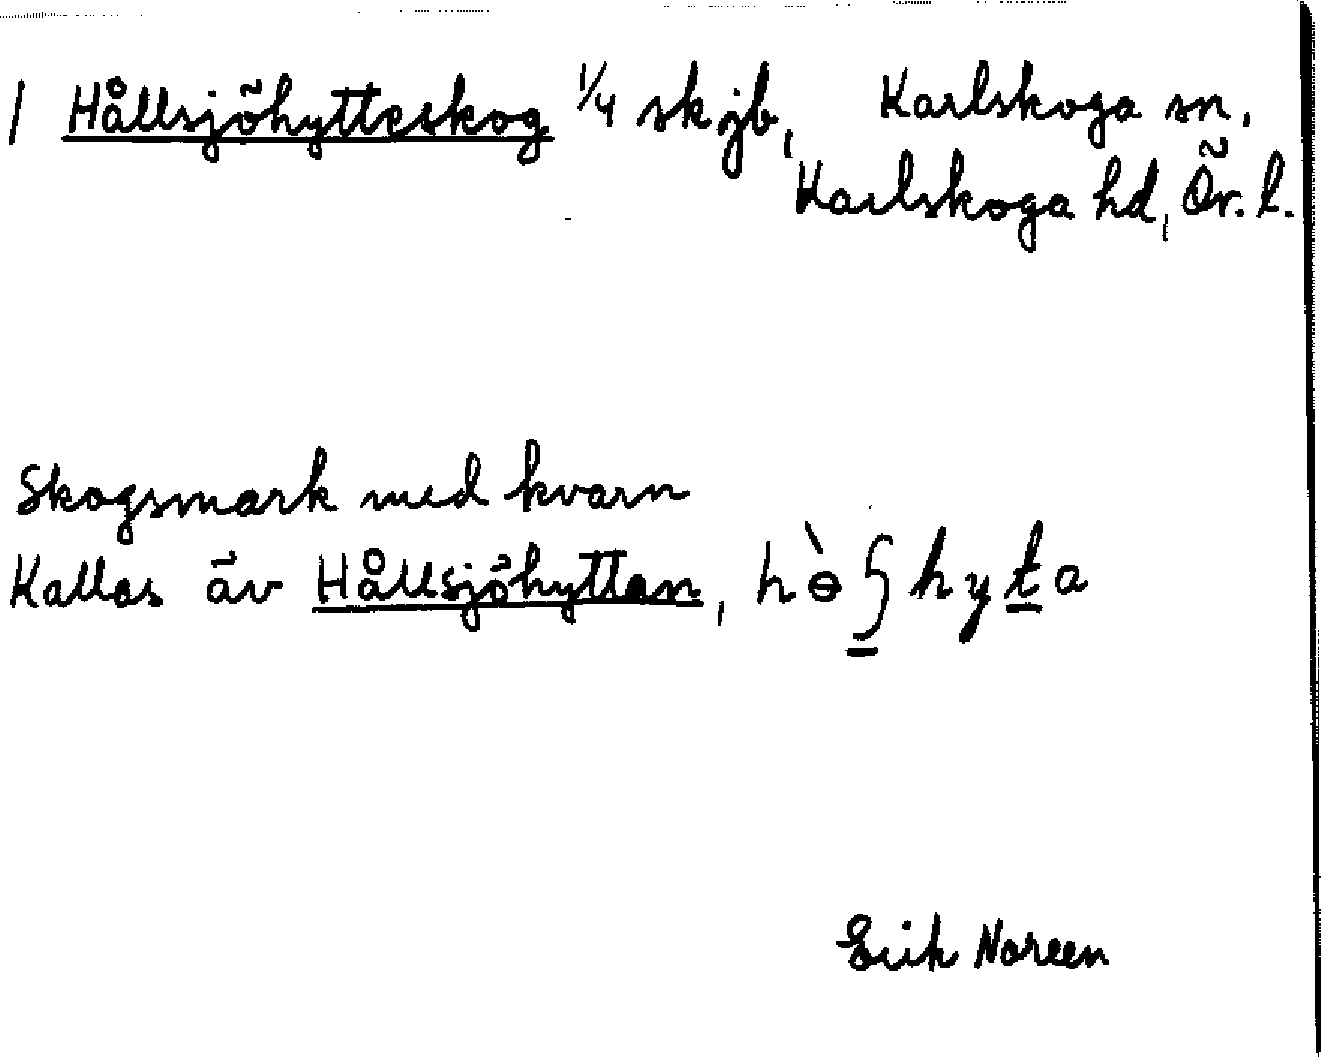 / Hållsjöhytteskog 1/4 skjb, Karlskoga sn.
Karlskoga hd, Ör. l.
Skogsmark med kvarn
Kallas äv Hållsjöhyttan,
Erik Noreen